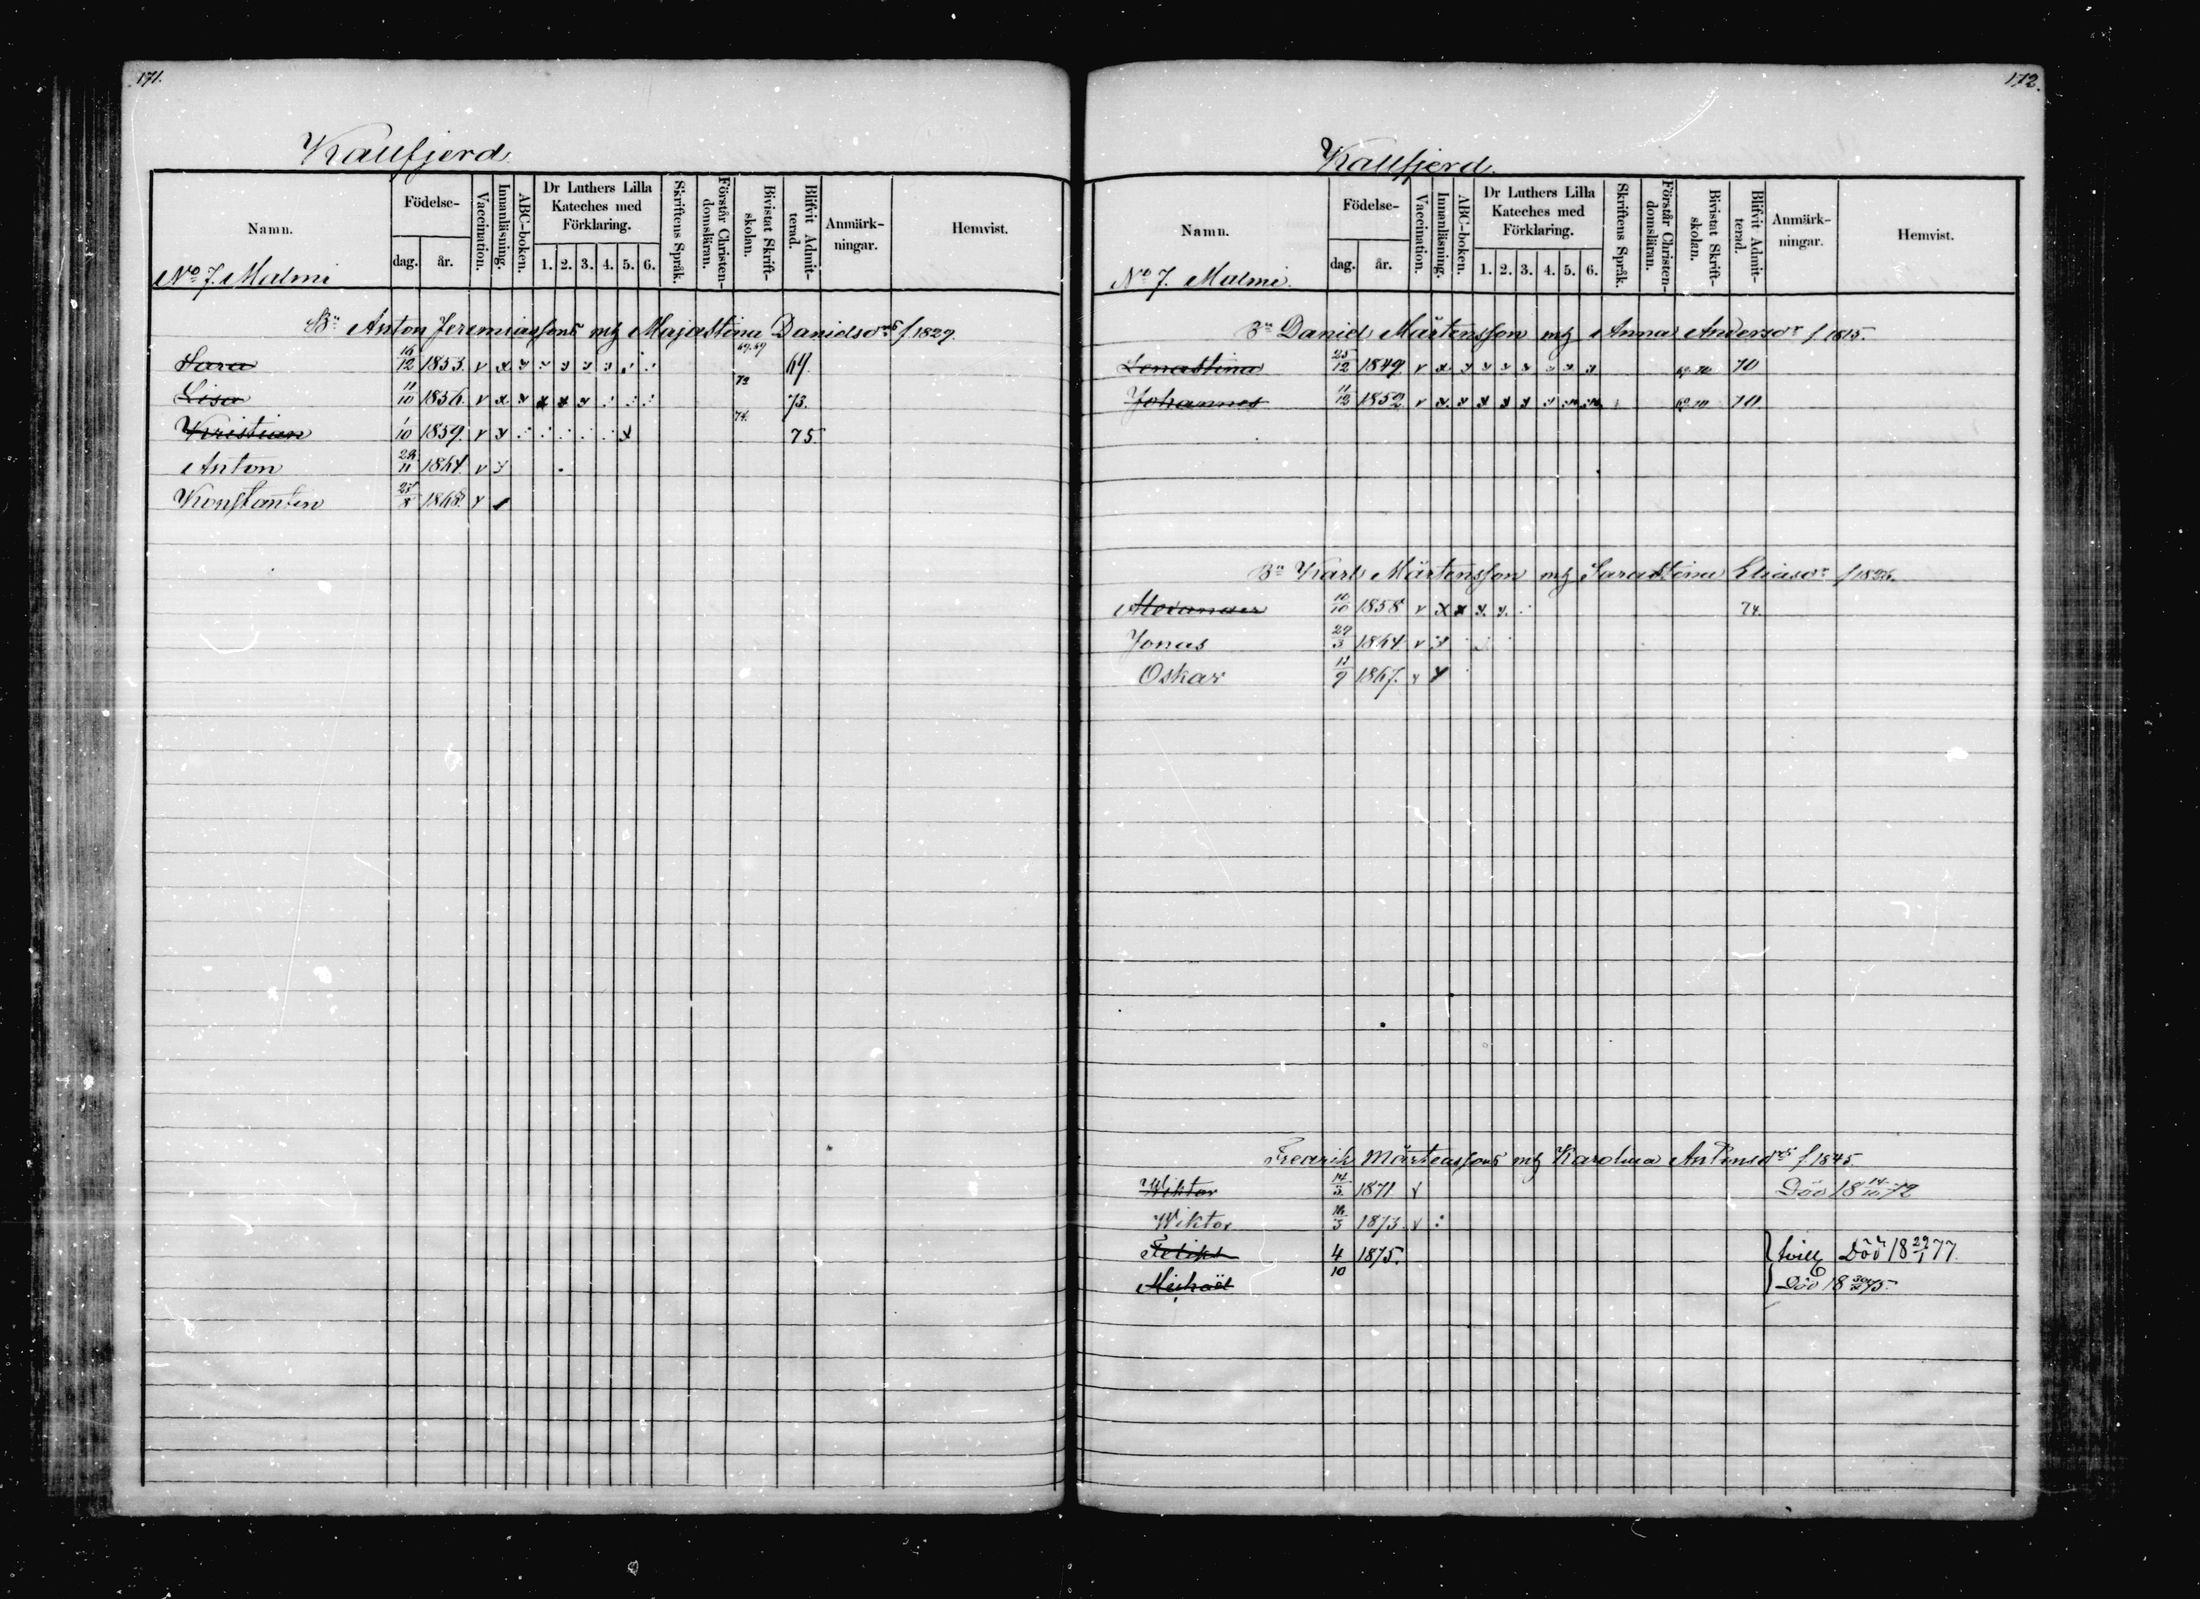 171.
Kaufjerd.
Namn.
Födelse-
dag. år.
Vaccination.
Innanläsning.
ABC-boken.
Dr Luthers Lilla Kateches med Förklaring.
1. 2. 3. 4. 5. 6.
Skriftens Språk.
Förstår Christen-domsläran.
Bivistat Skrift-skolan.
Blifvit Admit-terad.
Anmärk-ningar.
Hemvist.
No 7. Malmi
Bn Anton Jeremiasson mh Majastina Danielsdr f 1829.
Sara 16/12 1853. v x 69.69 69.
Lisa 11/10 1856. v x 72 73.
Kristian 1/10 1859. v 74. 75.
Anton 11 1864. v
Konstantin 1868.
172.
Kaufjerd.
Namn.
Födelse-
dag. år.
Vaccination.
Innanläsning.
ABC-boken.
Dr Luthers Lilla Kateches med Förklaring.
1. 2. 3. 4. 5. 6.
Skriftens Språk.
Förstår Christen-domsläran.
Bivistat Skrift-skolan.
Blifvit Admit-terad.
Anmärk-ningar.
Hemvist.
No 7. Malmi.
Bn Daniel Mårtensson mh Anna Andersdr f 1815.
Lenastina 25/12 1849. v 69.70 70
Johannes 1852 v 69.70 70.
Bn Karl Mårtensson mh Sarastina Eliasdr
10/10 1858 v 74.
Jonas 29/3 1864. v
Oskar 11/9 1867. v
Fredrik Mårtensson mh Karolina Antonsdr f 1845.
Wiktor 14/3 1871 v Död 18 14/10 72
Wiktor 16/3 1873. v
Feliks 4/10 1875. tvill Död 18 29/1 77.
Mickaël Död 18 75.